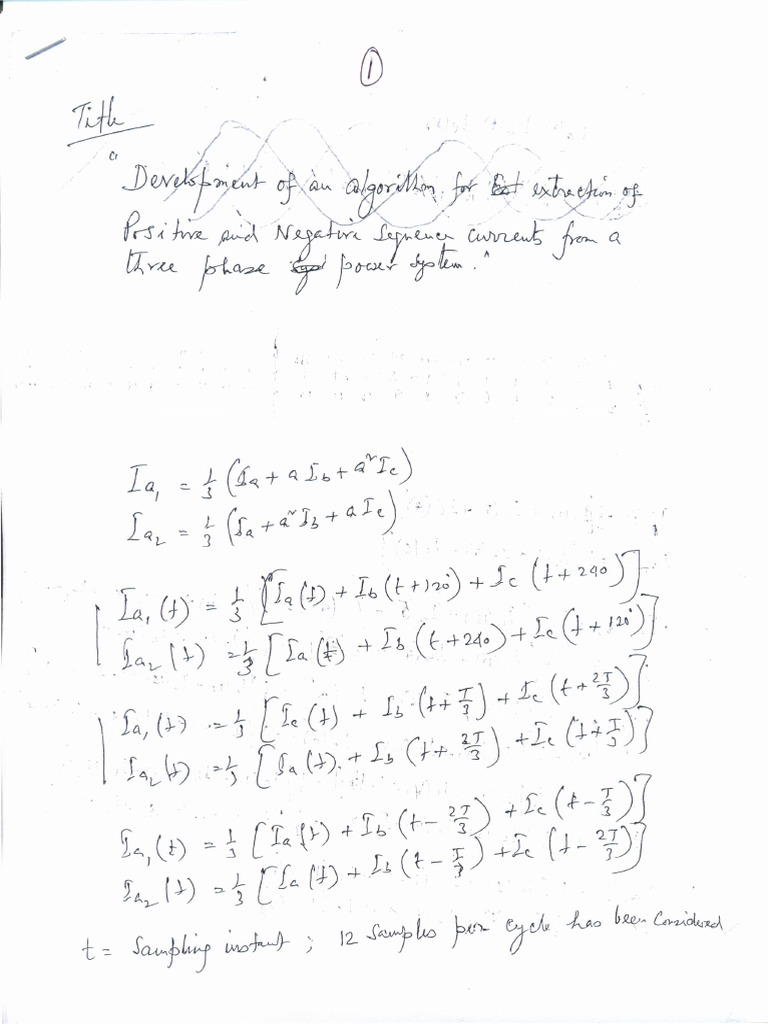 ①
Title
"Development of an algorithm for extraction of
Positive and Negative Sequence currents from a
three phase power system."
Ia₁ = 1/3 (Ia + a Ib + a² Ic)
Ia₂ = 1/3 (Ia + a² Ib + a Ic)
Ia₁(t) = 1/3 [Ia(t) + Ib(t+120°) + Ic(t+240)]
Ia₂(t) = 1/3 [Ia(t) + Ib(t+240) + Ic(t+120°)].
Ia₁(t) = 1/3 [Ic(t) + Ib(t+T/3) + Ic(t+2T/3)]
Ia₂(t) = 1/3 [Ia(t) + Ib(t+2T/3) + Ic(t+T/3)]
Ia₁(t) = 1/3 [Ia(t) + Ib(t-2T/3) + Ic(t-T/3)]
Ia₂(t) = 1/3 [Ia(t) + Ib(t-T/3) + Ic(t-2T/3)]
t = Sampling instant ; 12 Samples per cycle has been Considered